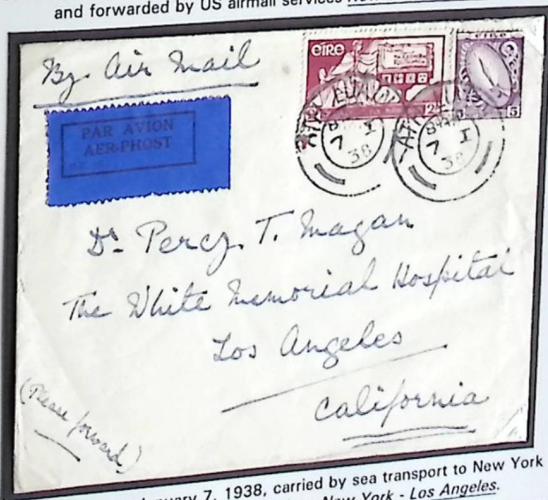 and forwarded by US airmail services
By Air Mail
PAR AVION
AER-PHOST
éIRE
5
7 I
38
7 I
38
Dr. Percy T. Magan
The White Memorial Hospital
Los Angeles
California
(Please forward)
7, 1938, carried by sea transport to New York
New York - Los Angeles.